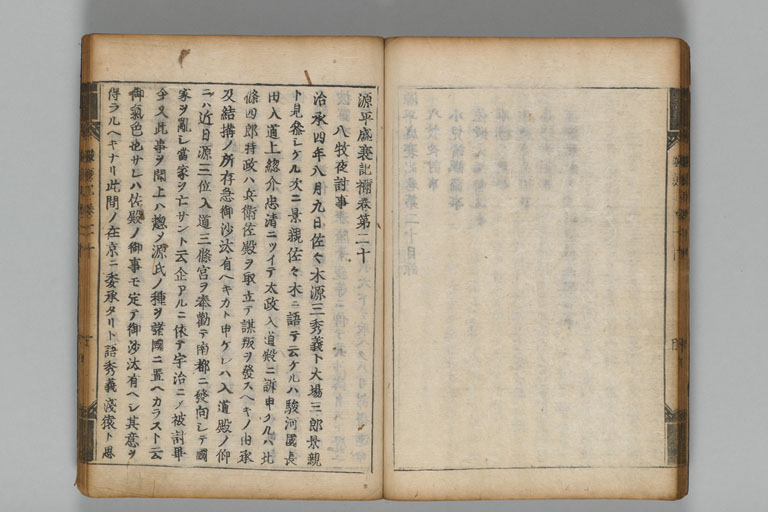 源平盛衰記補卷第二十
八牧夜討事
治承四年八月九日佐々木源三秀義ト大場三郎景親
ト見参シケル次ニ景親佐々木ニ語テ云ケルハ駿河國長
田入道上総介忠清ニツイテ太政入道殿ニ訴申クルハ北
條四郎時政ハ兵衛佐殿ヲ取立テ謀叛ヲ發スヘキノ由承
及結搆ノ所存急御沙汰有ヘキカト申ケレハ入道殿ノ仰
ニハ近日源三位入道三條宮ヲ奉勸テ南都ニ發向シテ國
家ヲ亂シ當家ヲ亡サント云企アルニ依テ宇治ニメ被討畢
今又此事ヲ聞上ハ惣メ源氏ノ種ヲ諸國ニ置ヘカラスト云
御氣色也サレハ佐殿ノ御事モ定テ御沙汰有ヘシ其意ヲ
得ラルヘキナリ此間ノ在京ニ委承タリト語秀義浅猿ト思